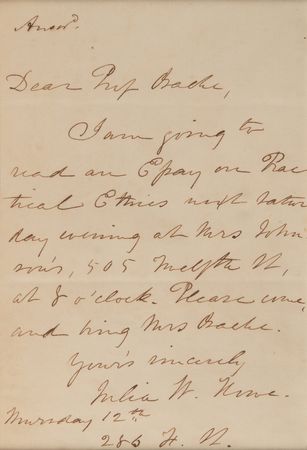 Answd.
Dear Prof Bache,
I am going to
read an Essay on Prac
tical Ethics next Satur
day evening at Mrs John
son's, 505 Twelfth St,
at 8 o'clock. Please come,
and bring Mrs Bache.
Your's sincerely
Julia W. Howe.
Thursday 12th
286 H. St.